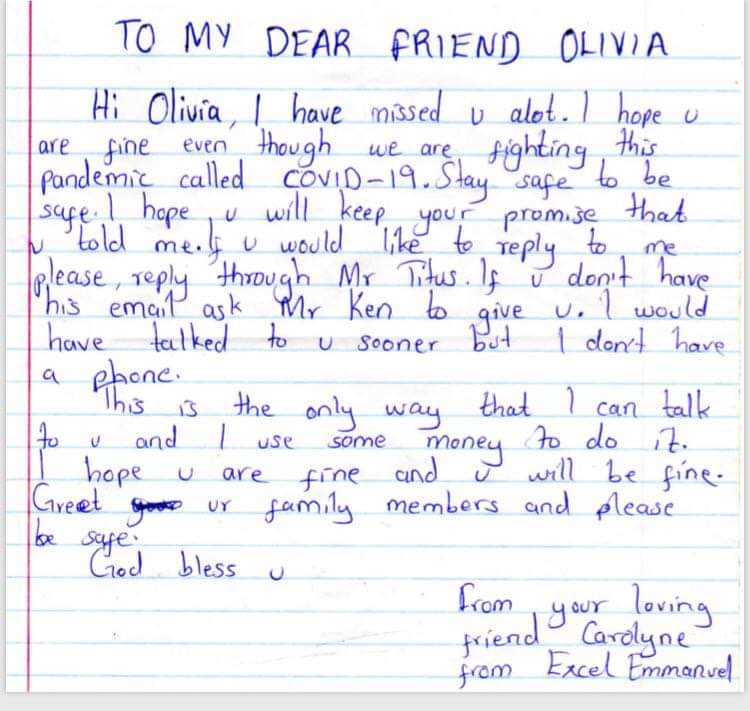 TO MY DEAR FRIEND OLIVIA
Hi Olivia, I have missed u alot. I hope u
are fine even though we are fighting this
pandemic called COVID-19. Stay safe to be
safe. I hope u will keep your promise that
u told me. If u would like to reply to me
please, reply through Mr Titus. If u don't have
his email ask Mr Ken to give u. I would
have talked to u sooner but I don't have
a phone.
This is the only way that I can talk
to u and I use some money to do it.
I hope u are fine and u will be fine.
Greet ur family members and please
be safe.
God bless u
from your loving
friend Carolyne
from Excel Emmanuel